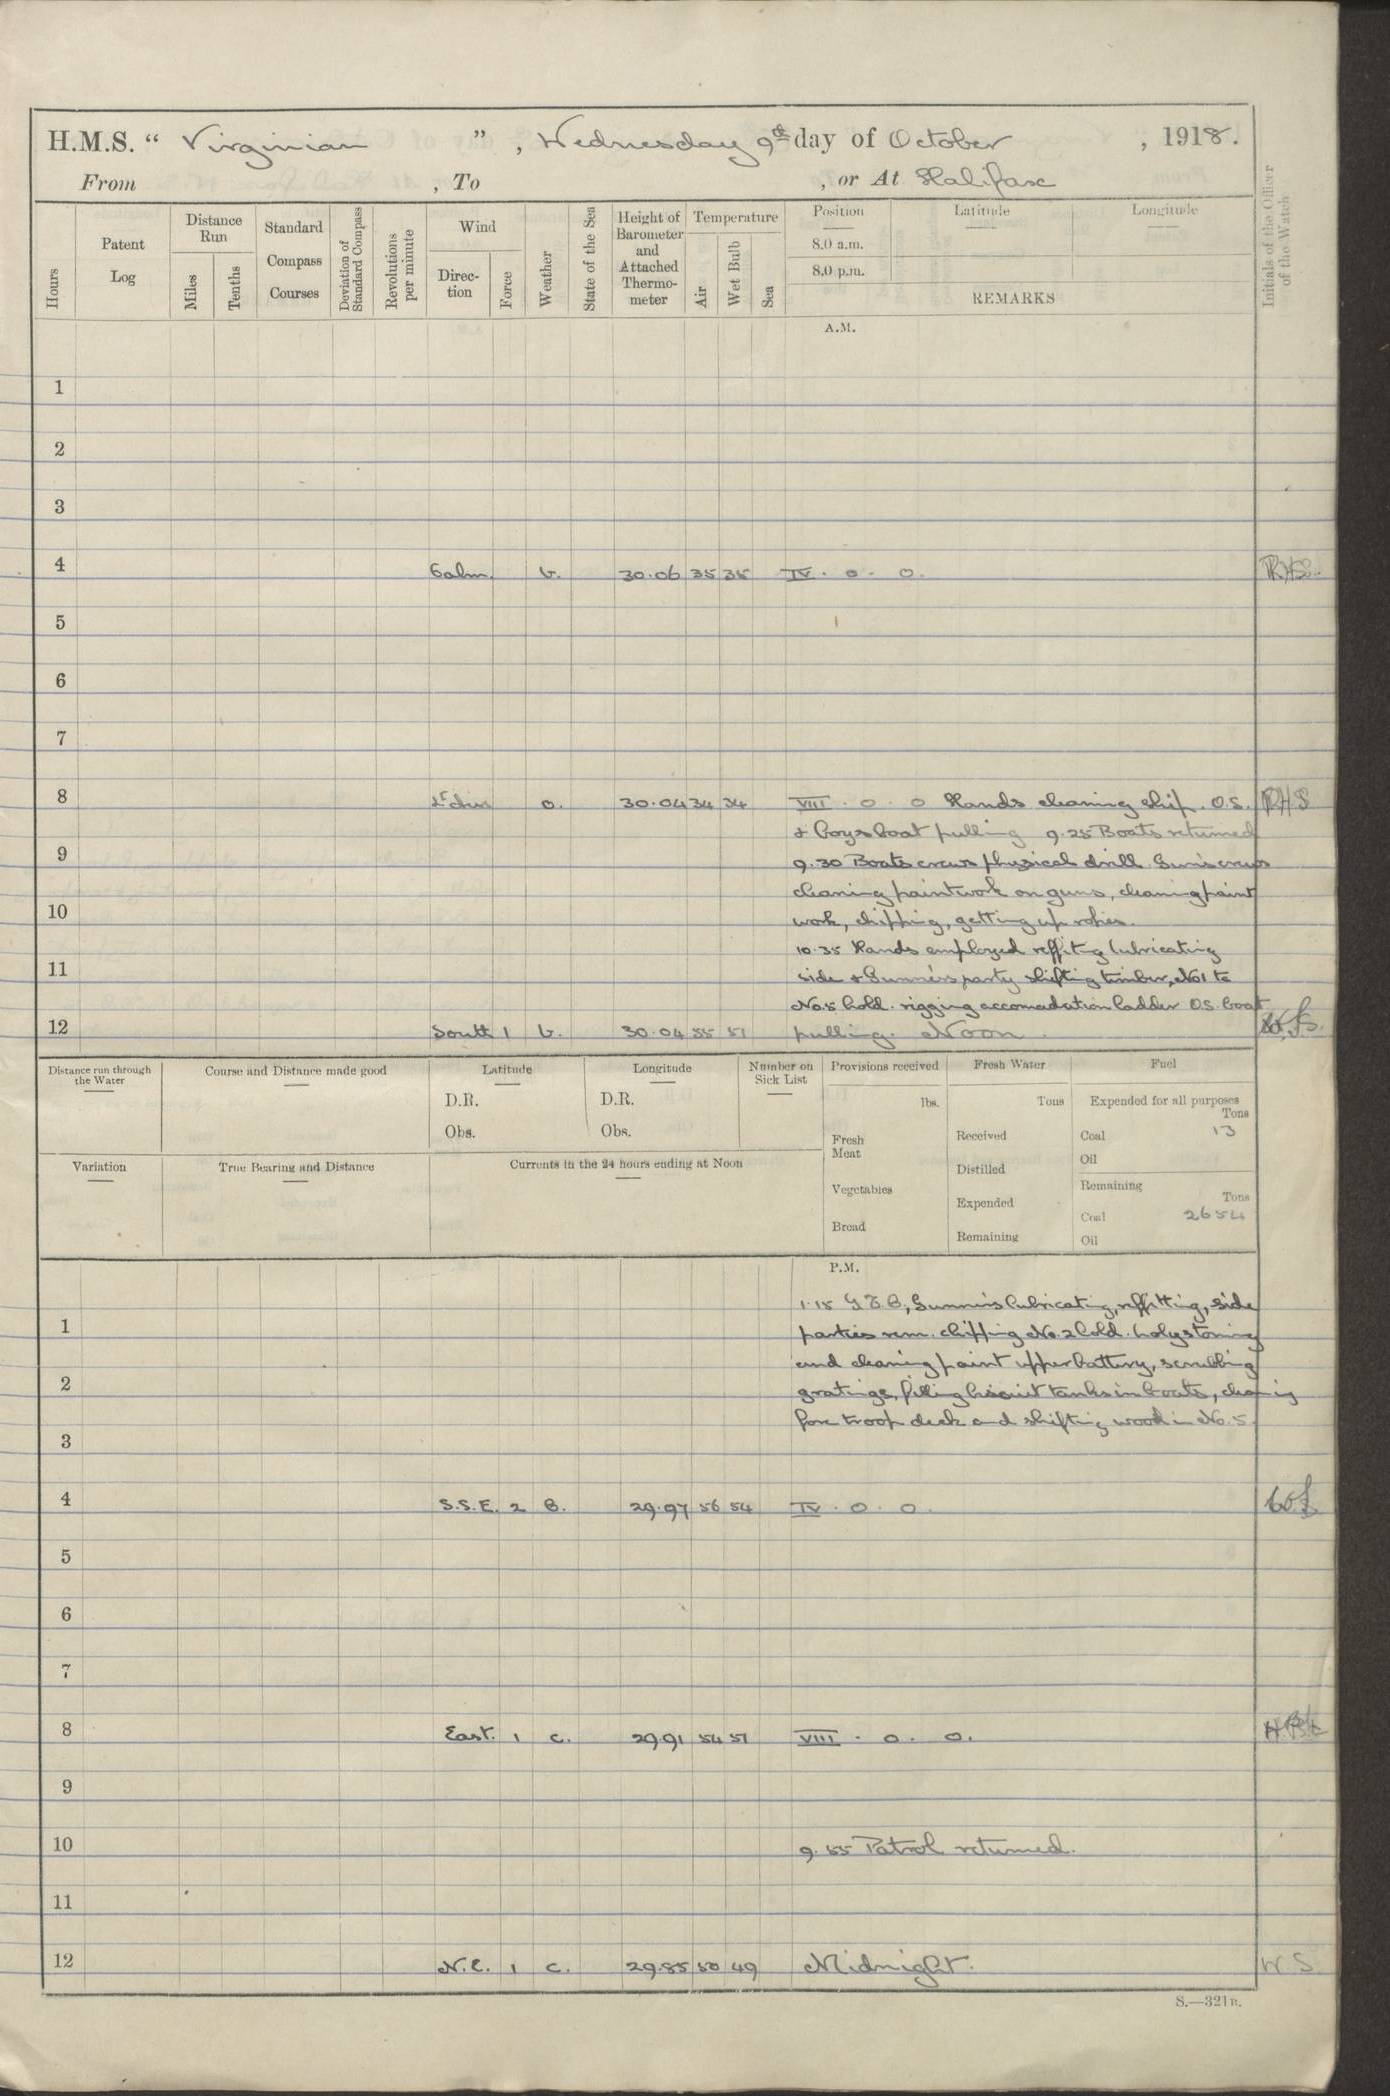 H.M.S. " Virginian ", Wednesday 9th day of October, 1918.
From , To , or At Halifax
Hours
Patent Log
Distance Run
Miles
Tenths
Standard Compass Courses
Deviation of Standard Compass
Revolutions per minute
Wind
Direction
Force
Weather
State of the Sea
Height of Barometer and Attached Thermometer
Temperature
Air
Wet Bulb
Sea
Position
Latitude
Longitude
8.0 a.m.
8.0 p.m.
REMARKS
Initials of the Officer of the Watch
A.M.
1
2
3
4 Calm b. 30.06 35 35 IV . o . o. RHS
5
6
7
8 o. 30.04 34 34 VIII . o . o Hands cleaning ship. O.S. RHS
& boys boat pulling 9.25 Boats returned
9
9.30 Boats crews physical drill. Guns crews
cleaning paintwork on guns, cleaning paint
10
work, chipping, getting up ropes.
10.35 Hands employed reffiting lubricating
11
side & Gunners party shifting timber, No1 to
No.5 hold. rigging accomadation ladder O.S. boat
12 South 1 b. 30.04 55 51 pulling. Noon.
Distance run through the Water
Course and Distance made good
Latitude
D.R.
Obs.
Longitude
D.R.
Obs.
Number on Sick List
Provisions received
lbs.
Fresh Meat
Vegetables
Bread
Fresh Water
Tons
Received
Distilled
Expended
Remaining
Fuel
Expended for all purposes
Tons
Coal 13
Oil
Remaining
Tons
Coal 2654
Oil
Variation
True Bearing and Distance
Currents in the 24 hours ending at Noon
P.M.
1.15 Gunners lubricating, reffitting, side
1
parties rem. chipping No. 2 hold. holystoning
and cleaning paint upper battery, scrubbing
2
gratings, filling biscuit tanks in boats, cleaning
fore troop deck and shifting wood in No. 5.
3
4 S.S.E. 2 B. 29.97 56 54 IV . o . o.
5
6
7
8 East. 1 c. 29.91 54 51 VIII . o . o.
9
10 9.55 Patrol returned.
11
12 N.E. 1 c. 29.85 50 49 Midnight. W S
S.—321B.